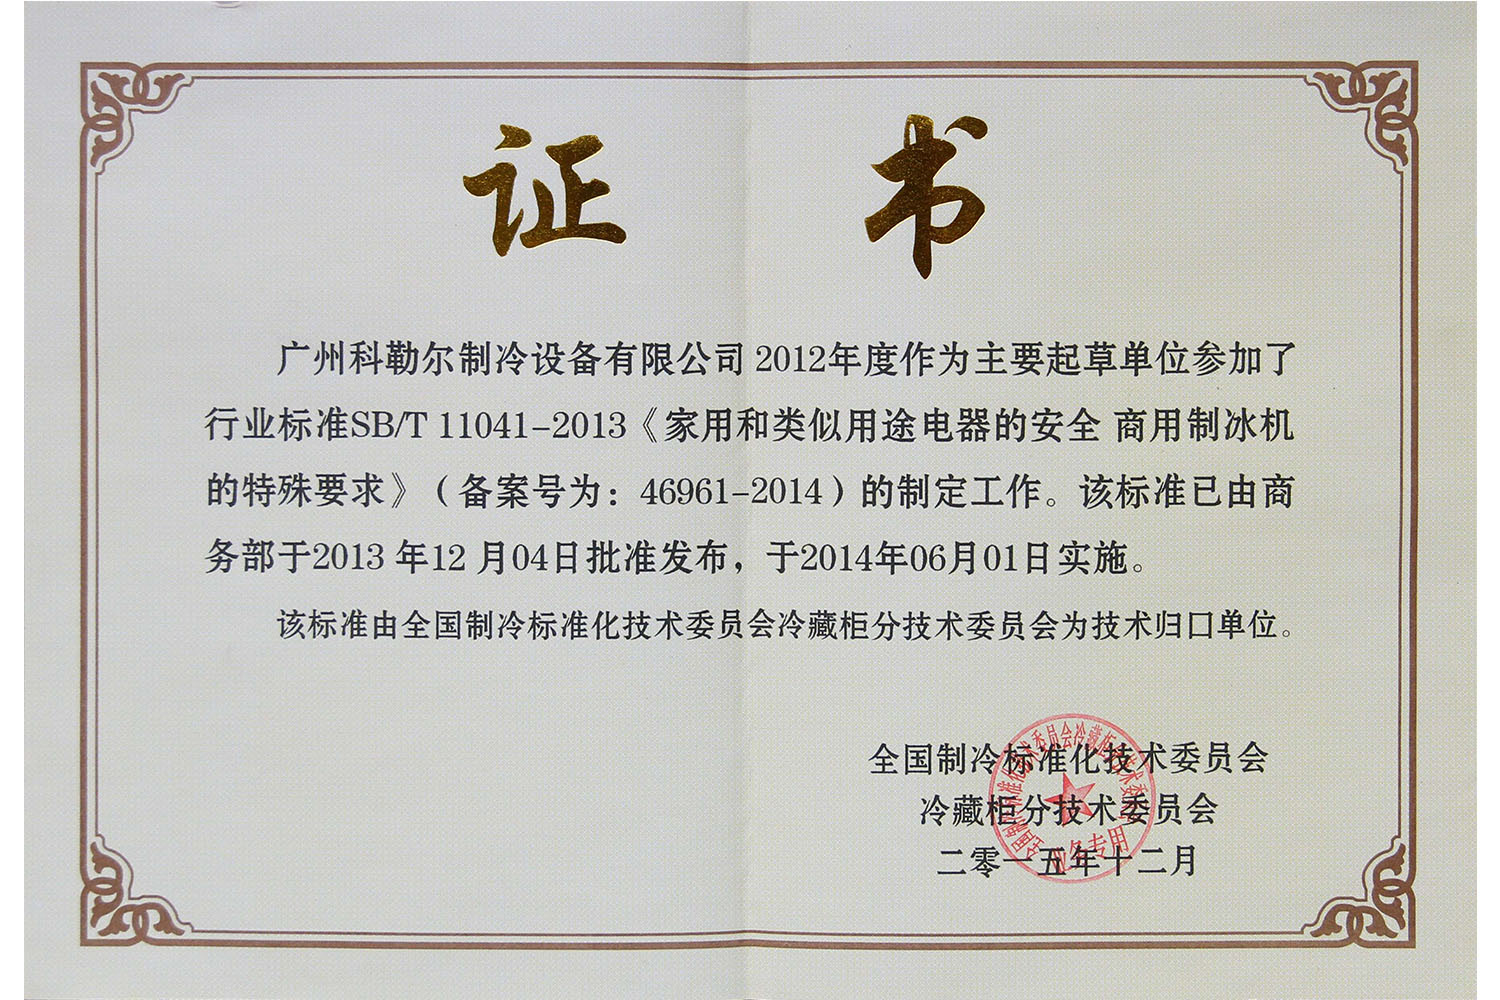 证 书
广州科勒尔制冷设备有限公司 2012年度作为主要起草单位参加了
行业标准SB/T 11041-2013《家用和类似用途电器的安全 商用制冰机
的特殊要求》（备案号为：46961-2014）的制定工作。该标准已由商
务部于2013 年12 月04日批准发布，于2014年06月01日实施。
该标准由全国制冷标准化技术委员会冷藏柜分技术委员会为技术归口单位。
全国制冷标准化技术委员会
冷藏柜分技术委员会
二零一五年十二月
全国制冷标准化技术委员会冷藏柜分技术委员会
业务专用